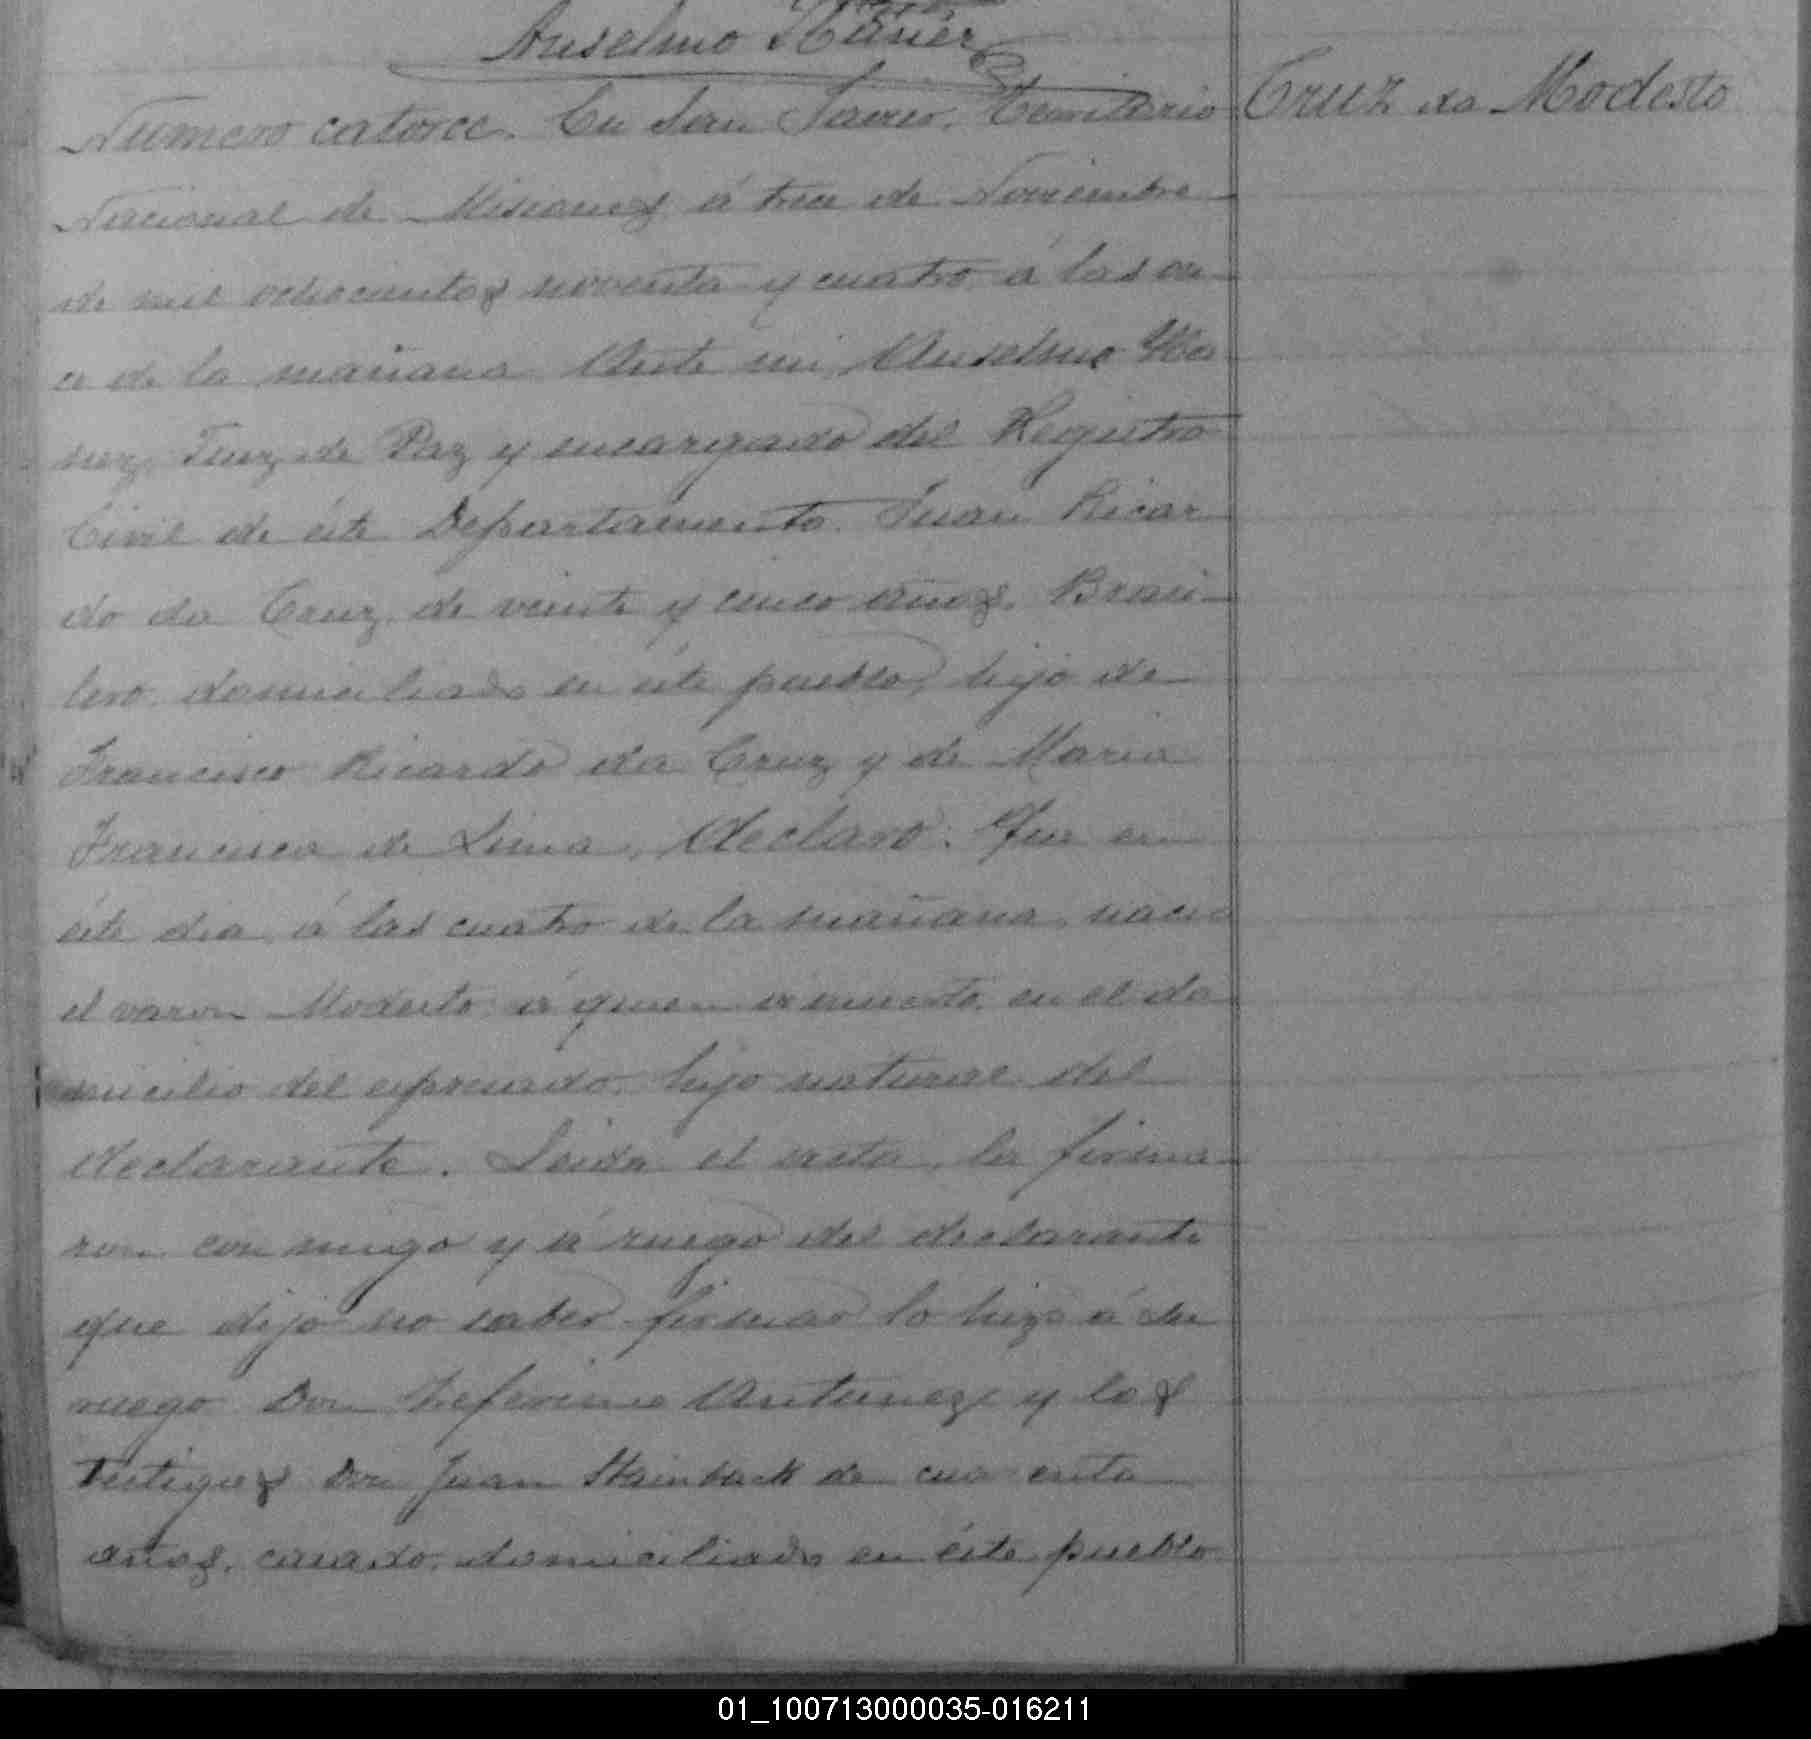 Anselmo
Numero catorce. En San Javier, Territorio
Cruz da Modesto
Nacional de Misiones á trece de Noviembre
de mil ochocientos noventa y cuatro á las on
ce de la mañana Ante mi, Anselmo
Juez de Paz y encargado del Registro
Civil de éste Departamento. Juan Ricar
do da Cruz, de veinte y cinco años, Brasi
lero, domiciliado en éste pueblo, hijo de
Francisco Ricardo da Cruz y de Maria
Francisca de Lima, declaró: Que en
éste dia, á las cuatro de la mañana, nació
el varon Modesto á quien en el do
micilio del espresado, hijo natural del
declarante. Leida el acta, la firma
ron con migo y á ruego del declarante
que dijo no saber firmar lo hizo á su
ruego Don Zeferino Antunez y los
testigos Don Juan Steinback de cuarenta
años, casado, domiciliado en éste pueblo
01_100713000035-016211